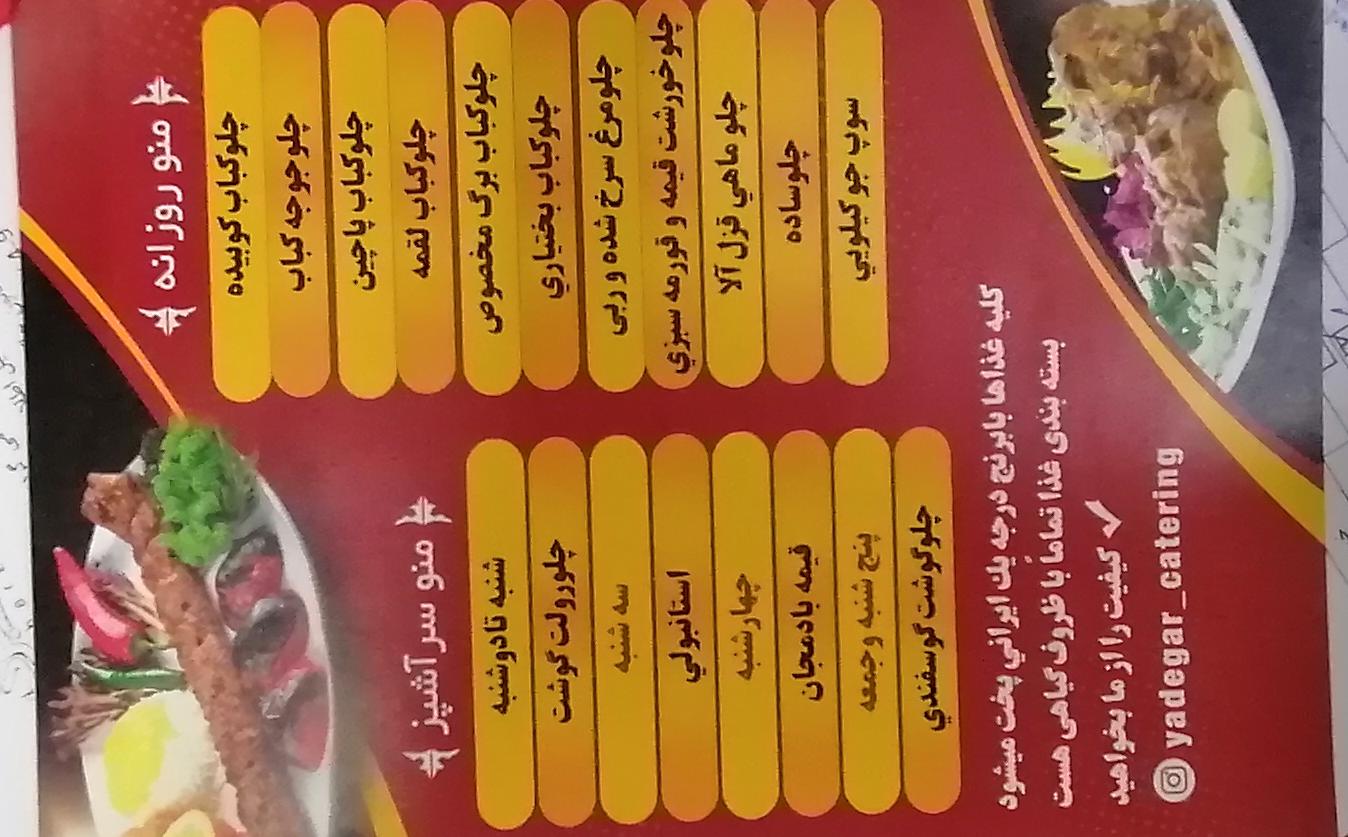 منو روزانه
چلوکباب کوبیده
چلوجوجه کباب
چلوکباب پاچین
چلوکباب لقمه
چلوکباب برگ مخصوص
چلوکباب بختیاري
چلومرغ سرخ شده و ربی
چلوخورشت قیمه و قورمه سبزي
چلو ماهي قزل آلا
چلوساده
سوپ جو کیلویي
منو سرآشپز
شنبه تادوشنبه
چلورولت گوشت
سه شنبه
استانبولي
چهارشنبه
قیمه بادمجان
پنج شنبه وجمعه
چلوگوشت گوسفندي
کلیه غذاها بابرنج درجه یك ایراني پخت میشود
بسته بندی غذا تماماً با ظروف گیاهی هست
کیفیت را از ما بخواهید ✓
yadegar_catering